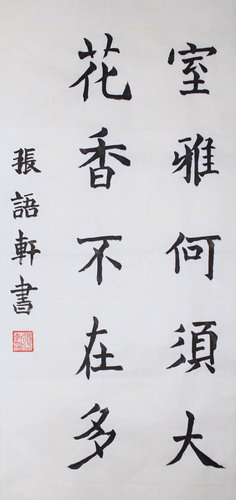 室雅何須大
花香不在多
張語軒書